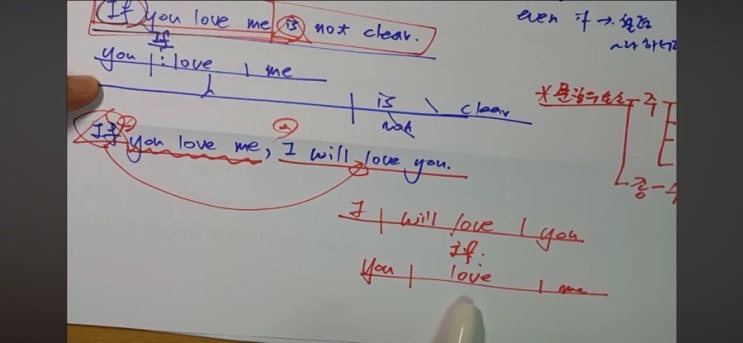 If you love me is not clear.
even if →
If
you | : love | me
is \ clear
not
If you love me, I will love you.
주
종
I | will love | you
If:
you | love | me